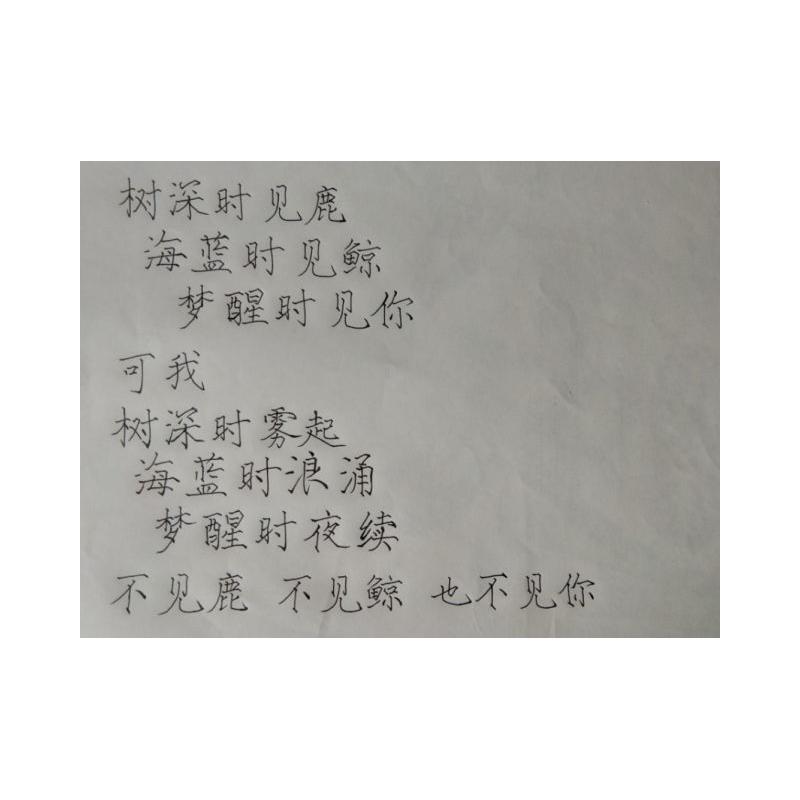 树深时见鹿
海蓝时见鲸
梦醒时见你
可我
树深时雾起
海蓝时浪涌
梦醒时夜续
不见鹿 不见鲸 也不见你